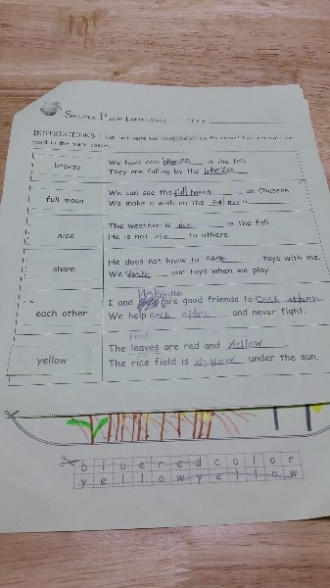 INSTRUCTIONS :
breeze
We have cool breeze in the fall.
They are falling by the breeze
full moon
We can see the full moon on Chuseok
We make a wish on the full moon
nice
The weather is nice in the fall
He is not nice to others.
share
He does not know to share toys with me.
We share our toys when we play
each other
I and are good friends to each other
We help each other and never fight.
yellow
The leaves are red and yellow
The rice field is yellow under the sun.
b l u e r e d c o l o r
y e l l o w y e l l o w